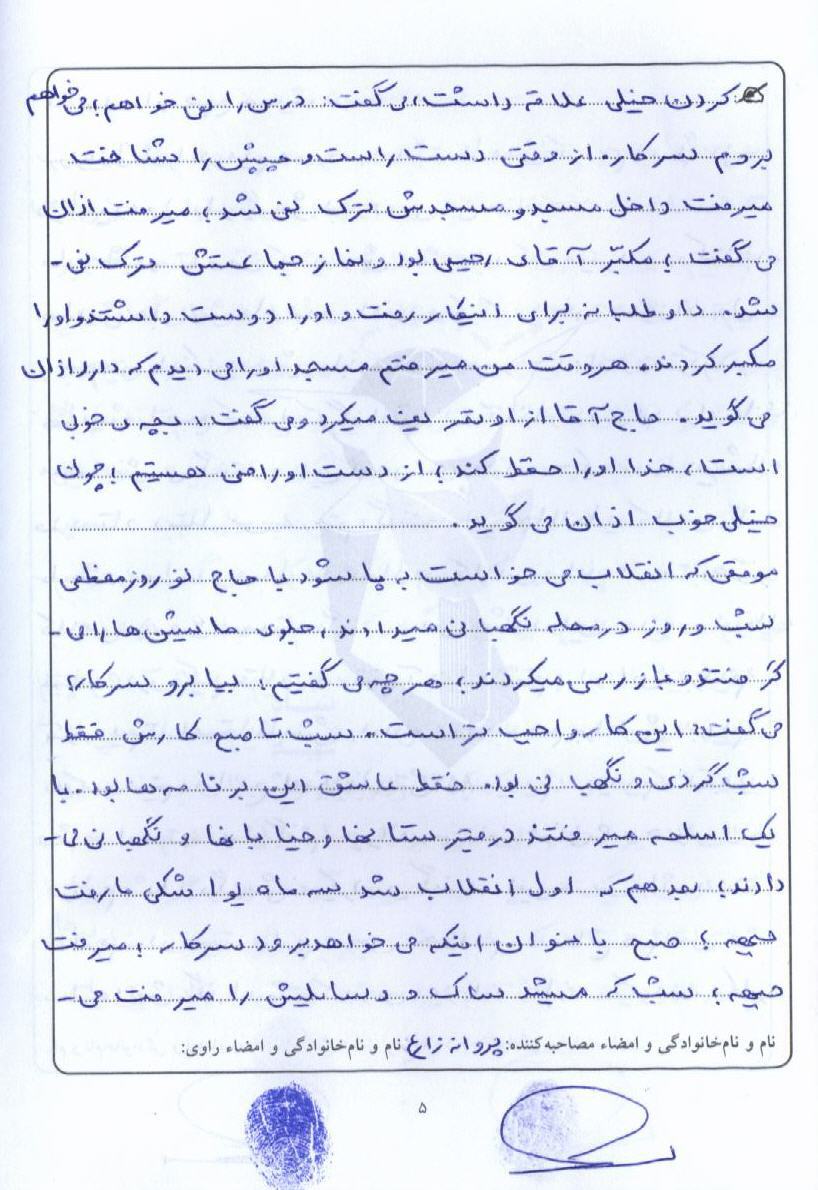 کردن خیلی علاقه داشت، می گفت: درس را نمی خواهم؛ می خواهم
بروم سرکار. از وقتی دست راست و چپش را شناخت
میرفت داخل مسجد و مسجدش ترک نمی شد؛ میرفت اذان
می گفت؛ مکبّر آقای رحیمی بود و نماز جماعتش ترک نمی-
شد. داوطلبانه برای اینکار رفت و او را دوست داشتند و او را
مکبر کردند. هر وقت من میرفتم مسجد او را می دیدم که دارد اذان
می گوید. حاج آقا از او تعریف میکرد و می گفت: بچه ی خوبی
است، خدا او را حفظ کند؛ از دست او راضی هستیم؛ چون
خیلی خوب اذان می گوید.
موقعی که انقلاب می خواست به پا شود با حاج نوروز معظمی
شب و روز در محله نگهبانی میدادند، جلوی ماشین ها را می-
گرفتند و بازرسی میکردند، هر چه می گفتیم: بیا برو سرکار؛
می گفت: این کار واجب تر است. شب تا صبح کارش فقط
شب گردی و نگهبانی بود. فقط عاشق این برنامه ها بود. با
یک اسلحه میرفتند در قبرستانها و خیابانها و نگهبانی می-
دادند؛ بعد هم که اول انقلاب شد سه ماه یواشکی ما رفت
جبهه؛ صبح با عنوان اینکه می خواهد برود سرکار؛ میرفت
جبهه؛ شب که میشد ساک و وسایلش را میرفت می-
نام و نام‌خانوادگی و امضاء مصاحبه‌کننده: پروانه زارع نام و نام‌خانوادگی و امضاء راوی:
۵